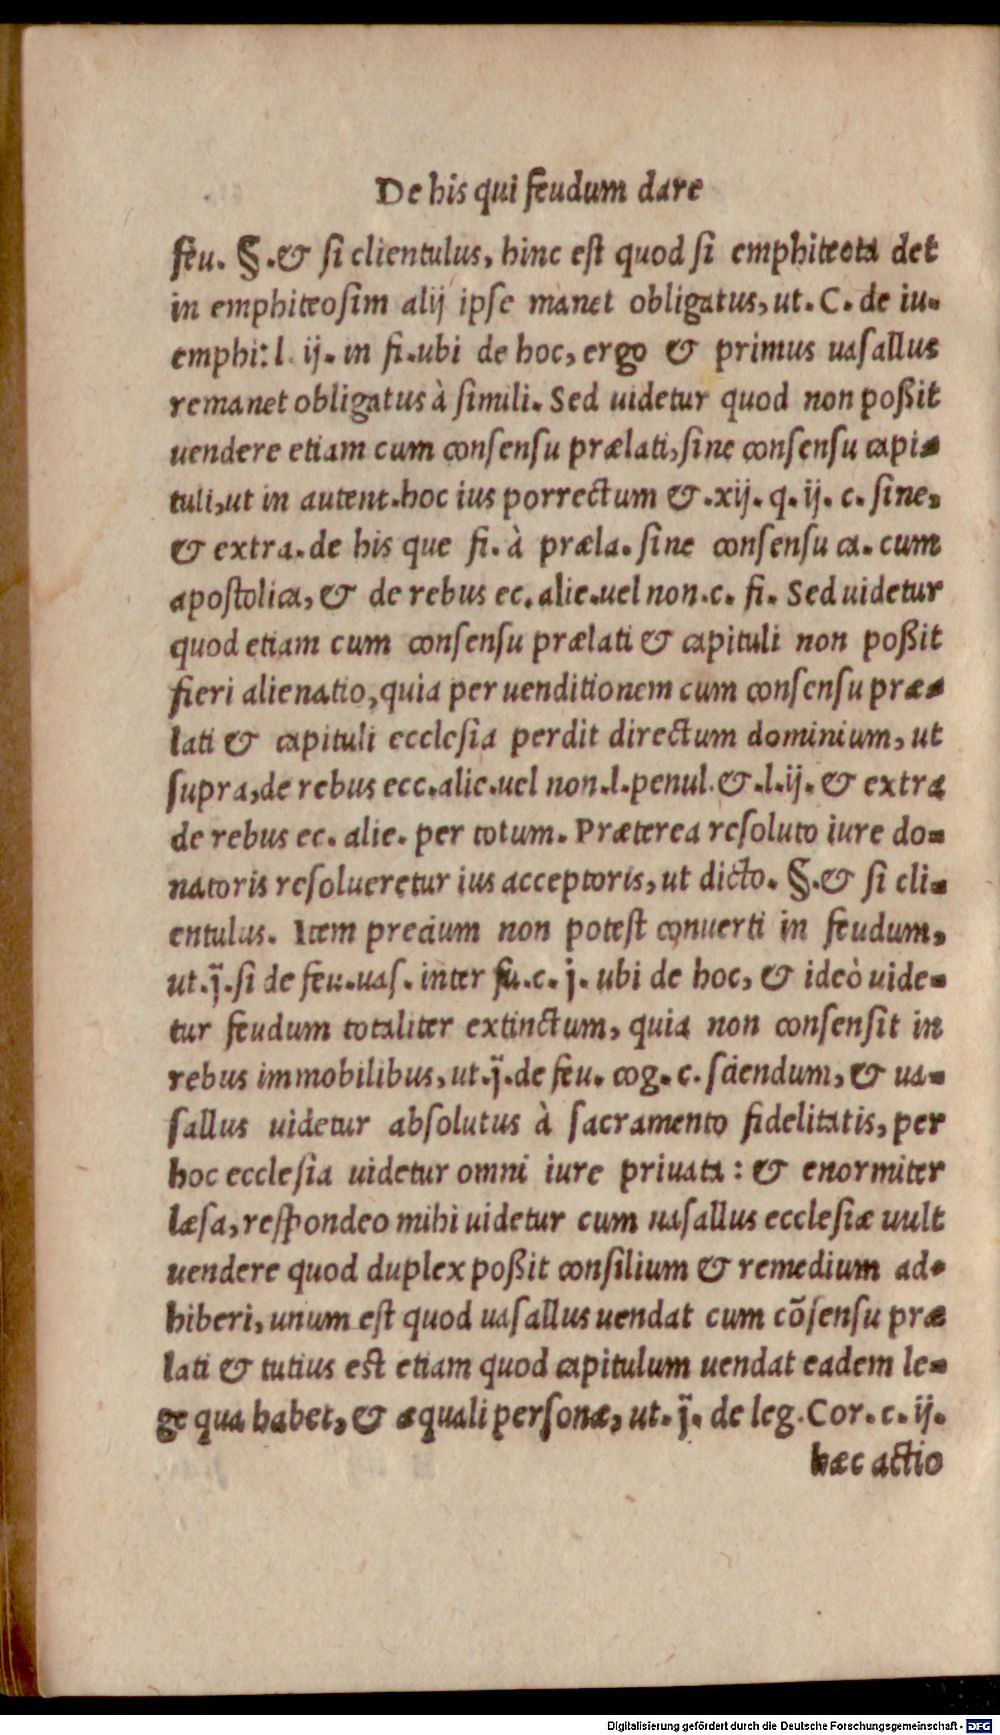 De his qui feudum dare
feu. §.& si clientulus, hinc est quod si emphiteota det
in emphiteosim alij ipse manet obligatus, ut. C. de iu-
emphi: l. ij. in fi. ubi de hoc, ergo & primus uasallus
remanet obligatus à simili. Sed uidetur quod non poßit
uendere etiam cum consensu prælati, sine consensu capi-
tuli, ut in autent. hoc ius porrectum &. xij. q. ij. c. sine,
& extra. de his que fi. à præla. sine consensu ca. cum
apostolica, & de rebus ec. alie. uel non. c. fi. Sed uidetur
quod etiam cum consensu prælati & capituli non poßit
fieri alienatio, quia per uenditionem cum consensu præ-
lati & capituli ecclesia perdit directum dominium, ut
supra, de rebus ecc. alie. uel non. l. penul. &. l. ij. & extra
de rebus ec. alie. per totum. Præterea resoluto iure do-
natoris resolueretur ius acceptoris, ut dicto. §.& si cli-
entulus. Item precium non potest conuerti in feudum,
ut. j̃. si de feu. uas. inter fu. c. j. ubi de hoc, & ideò uide-
tur feudum totaliter extinctum, quia non consensit in
rebus immobilibus, ut. j̃. de feu. cog. c. sciendum, & ua-
sallus uidetur absolutus à sacramento fidelitatis, per
hoc ecclesia uidetur omni iure priuata : & enormiter
læsa, respondeo mihi uidetur cum uasallus ecclesiæ uult
uendere quod duplex poßit consilium & remedium ad-
hiberi, unum est quod uasallus uendat cum cõsensu præ
lati & tutius est etiam quod capitulum uendat eadem le-
ge qua habet, & æquali personæ, ut. j̃. de leg. Cor. c. ij.
hæc actio
Digitalisierung gefördert durch die Deutsche Forschungsgemeinschaft - DFG